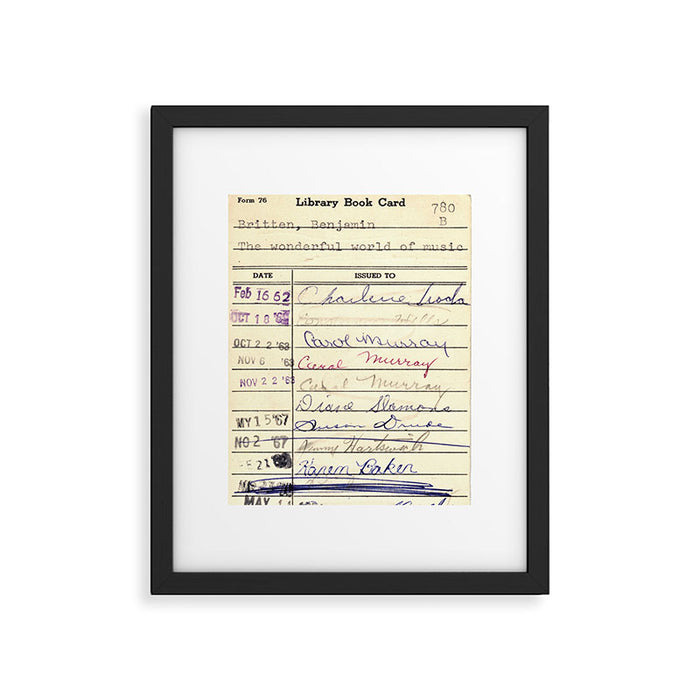 Form 76 Library Book Card 780
B
Britten, Benjamin
The wonderful world of music
DATE ISSUED TO
Feb 16 62 Charlene
OCT 18
OCT 22 '63 Carol Murray
NOV 6 '63 Carol Murray
NOV 22 '63 Carol Murray
Diane Slemons
MY 15 '67 Susan Drude
NO 2 '67
FE 21 Karen Baker
MAY